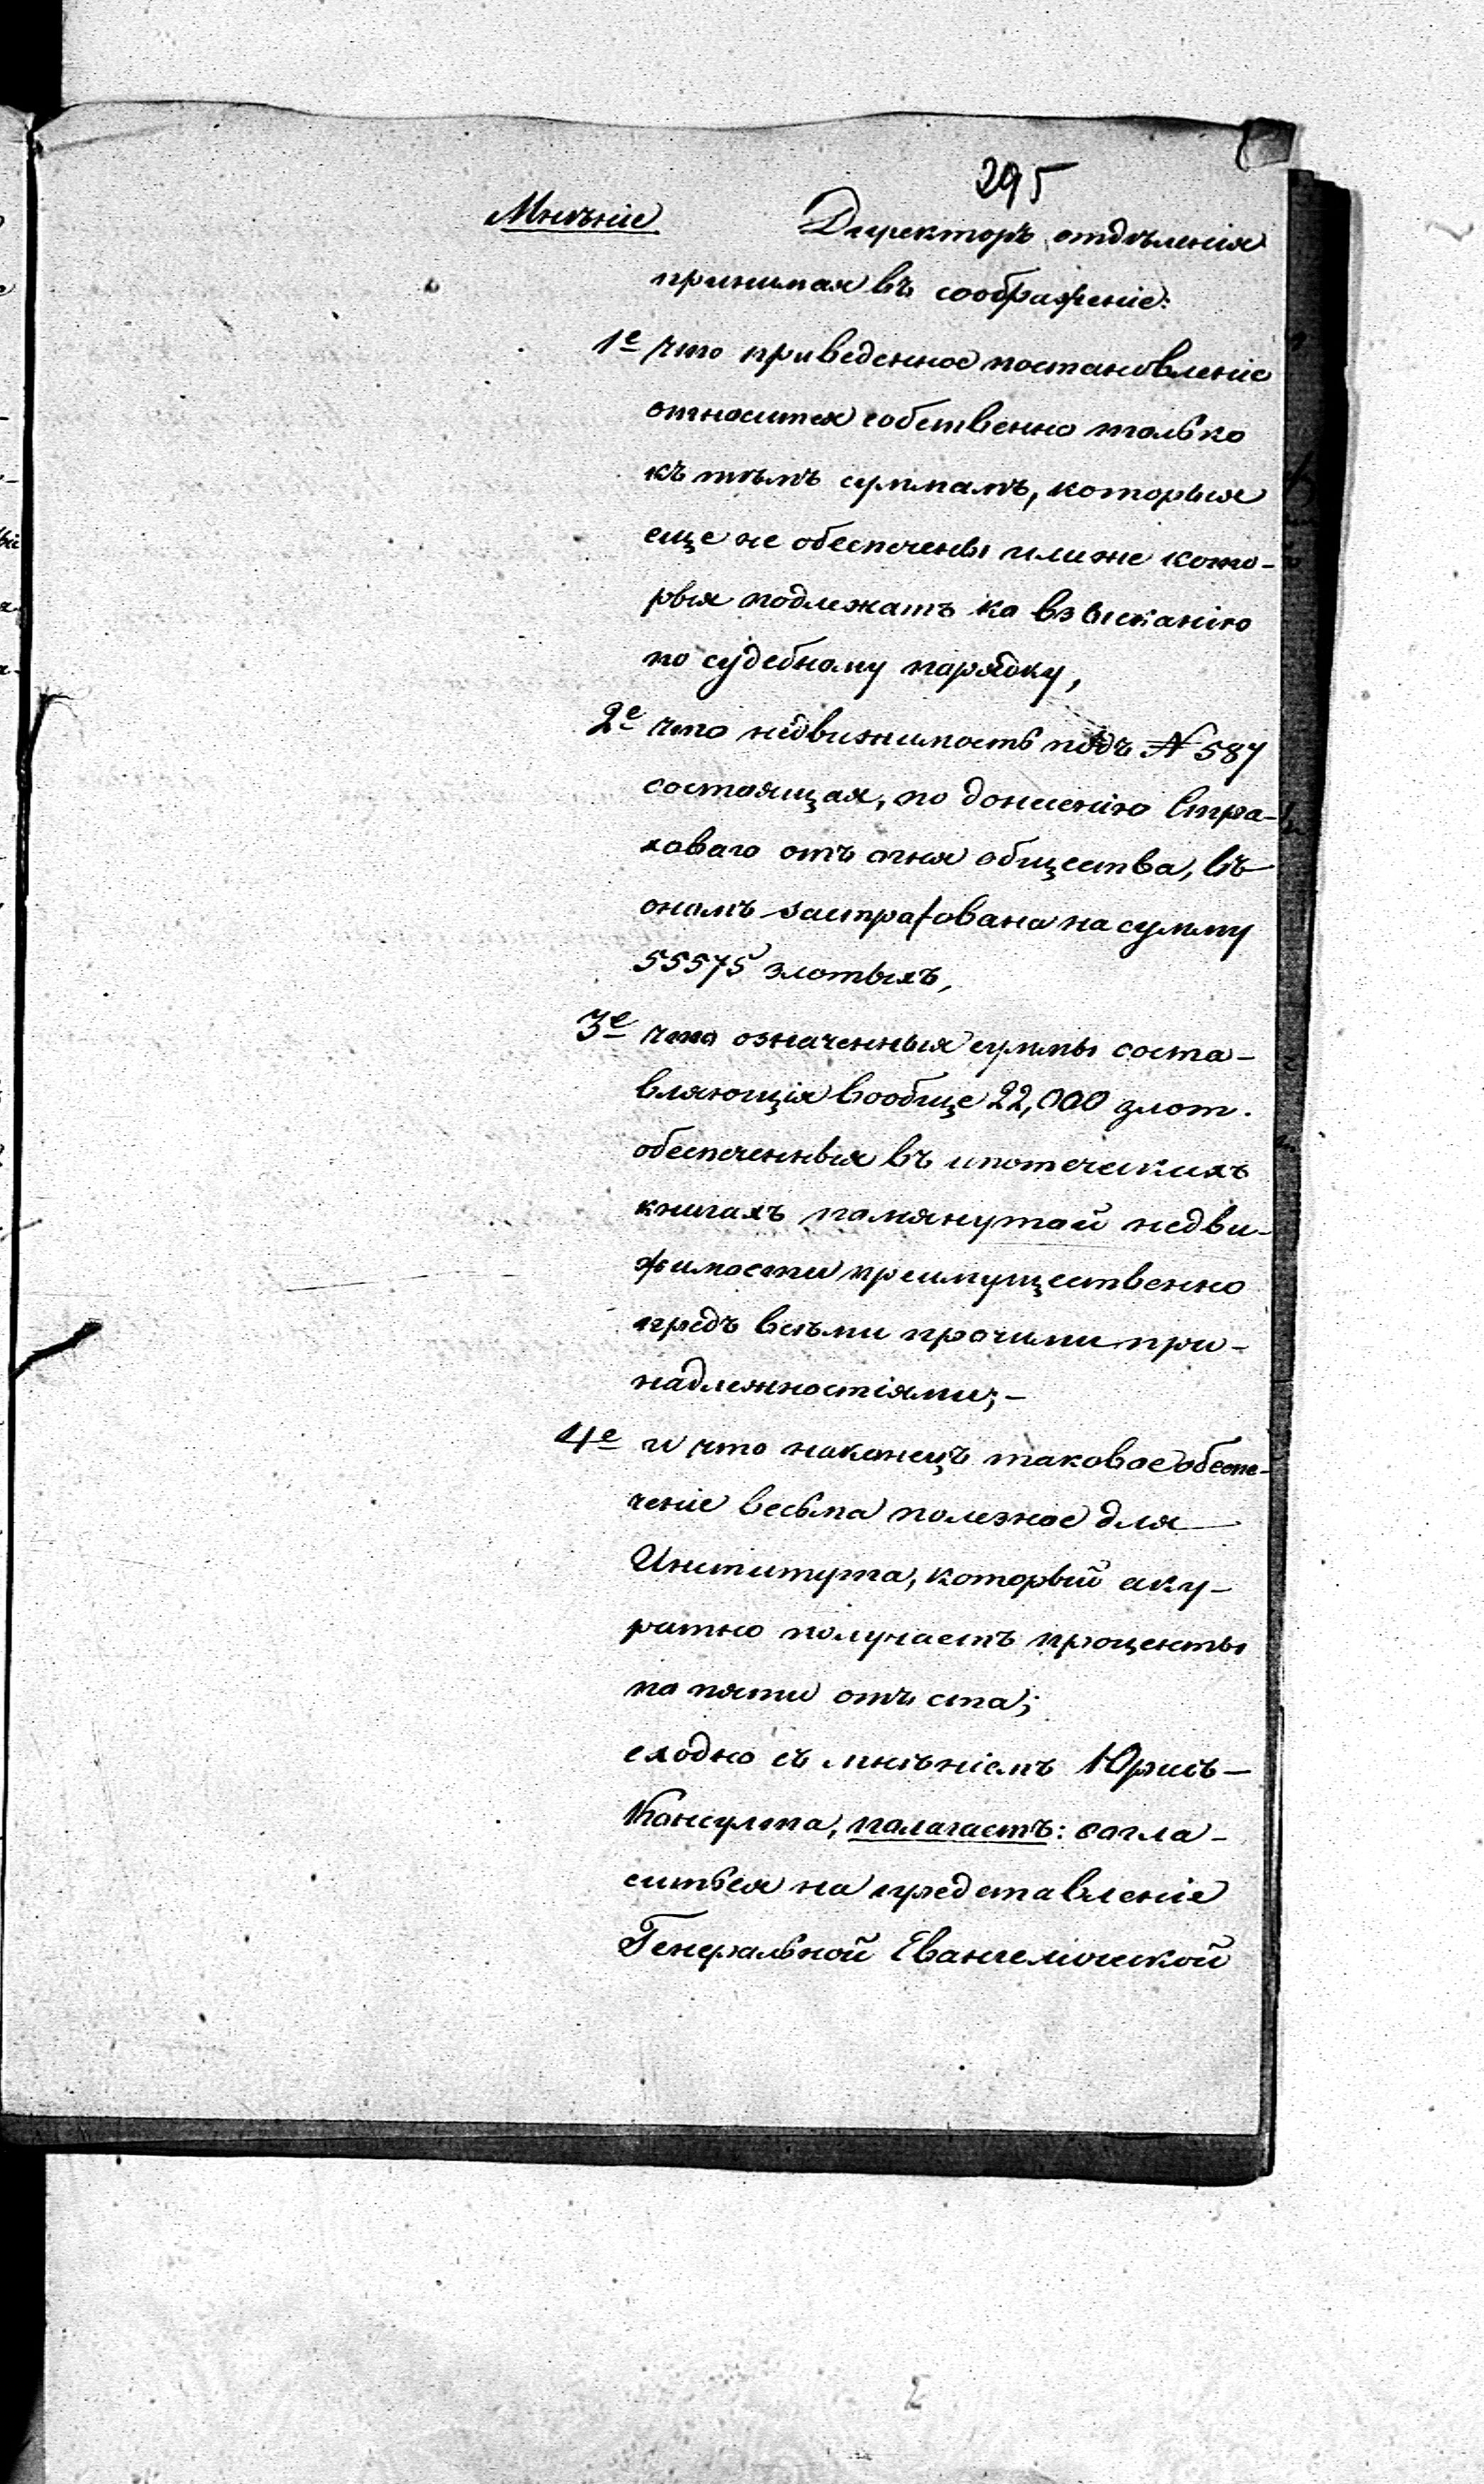 295
Мнѣніе Директоръ отдѣленія
принимая въ соображеніе:
1е что приведенное постановленіе
относится собственно только
къ тѣмъ суммамъ, которыя
еще не обеспечены или же кото-
рыя подлежатъ ко взысканію
по судебному порядку,
2е что недвижимость подъ № 587
состоящая, по донесенію Стра-
ховаго отъ огня общества, въ
ономъ застрахована на сумму
55575 злотыхъ,
3е что означенныя суммы соста-
вляющія вообще 22,000 злот.
обеспеченныя въ ипотеческихъ
книгахъ помянутой недви-
жимости преимущественно
предъ всѣми прочими при-
надлежностіями;-
4е и что наконецъ таковое обеспе-
ченіе весьма полезное для
Института, который аку-
ратно получаетъ проценты
по пяти отъ ста;
сходно съ мнѣніемъ Юрисъ-
Консулта, полагаетъ: согла-
ситься на представленіе
Генеральной Евангелической